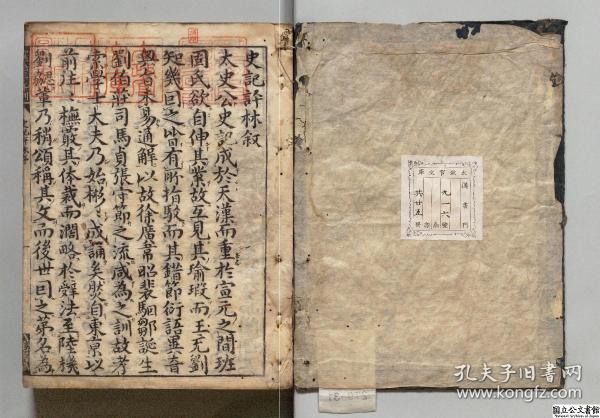 史記評林叙
太史公史記成於天漢而重於宣元之間班
固氏欲自伸其業故互見其瑜瑕而王充劉
知幾曰之皆有所指駁而其錯節衍語異音
奥旨未易通解以故徐廣韋昭裴駰鄒誕生
劉伯莊司馬貞張守節之流咸為之訓故考
索學士大夫乃始彬彬成誦矣然自東京以
前注
橅蕞其体裁而濶略於辭法至陸機
劉勰輩乃稍頌稱其文而後世曰之第名為
太政官文庫
漢書門
九一六
號
共廿五
冊
孔夫子旧书网
kongfz.com
国立公文書館
National Archives of Japan